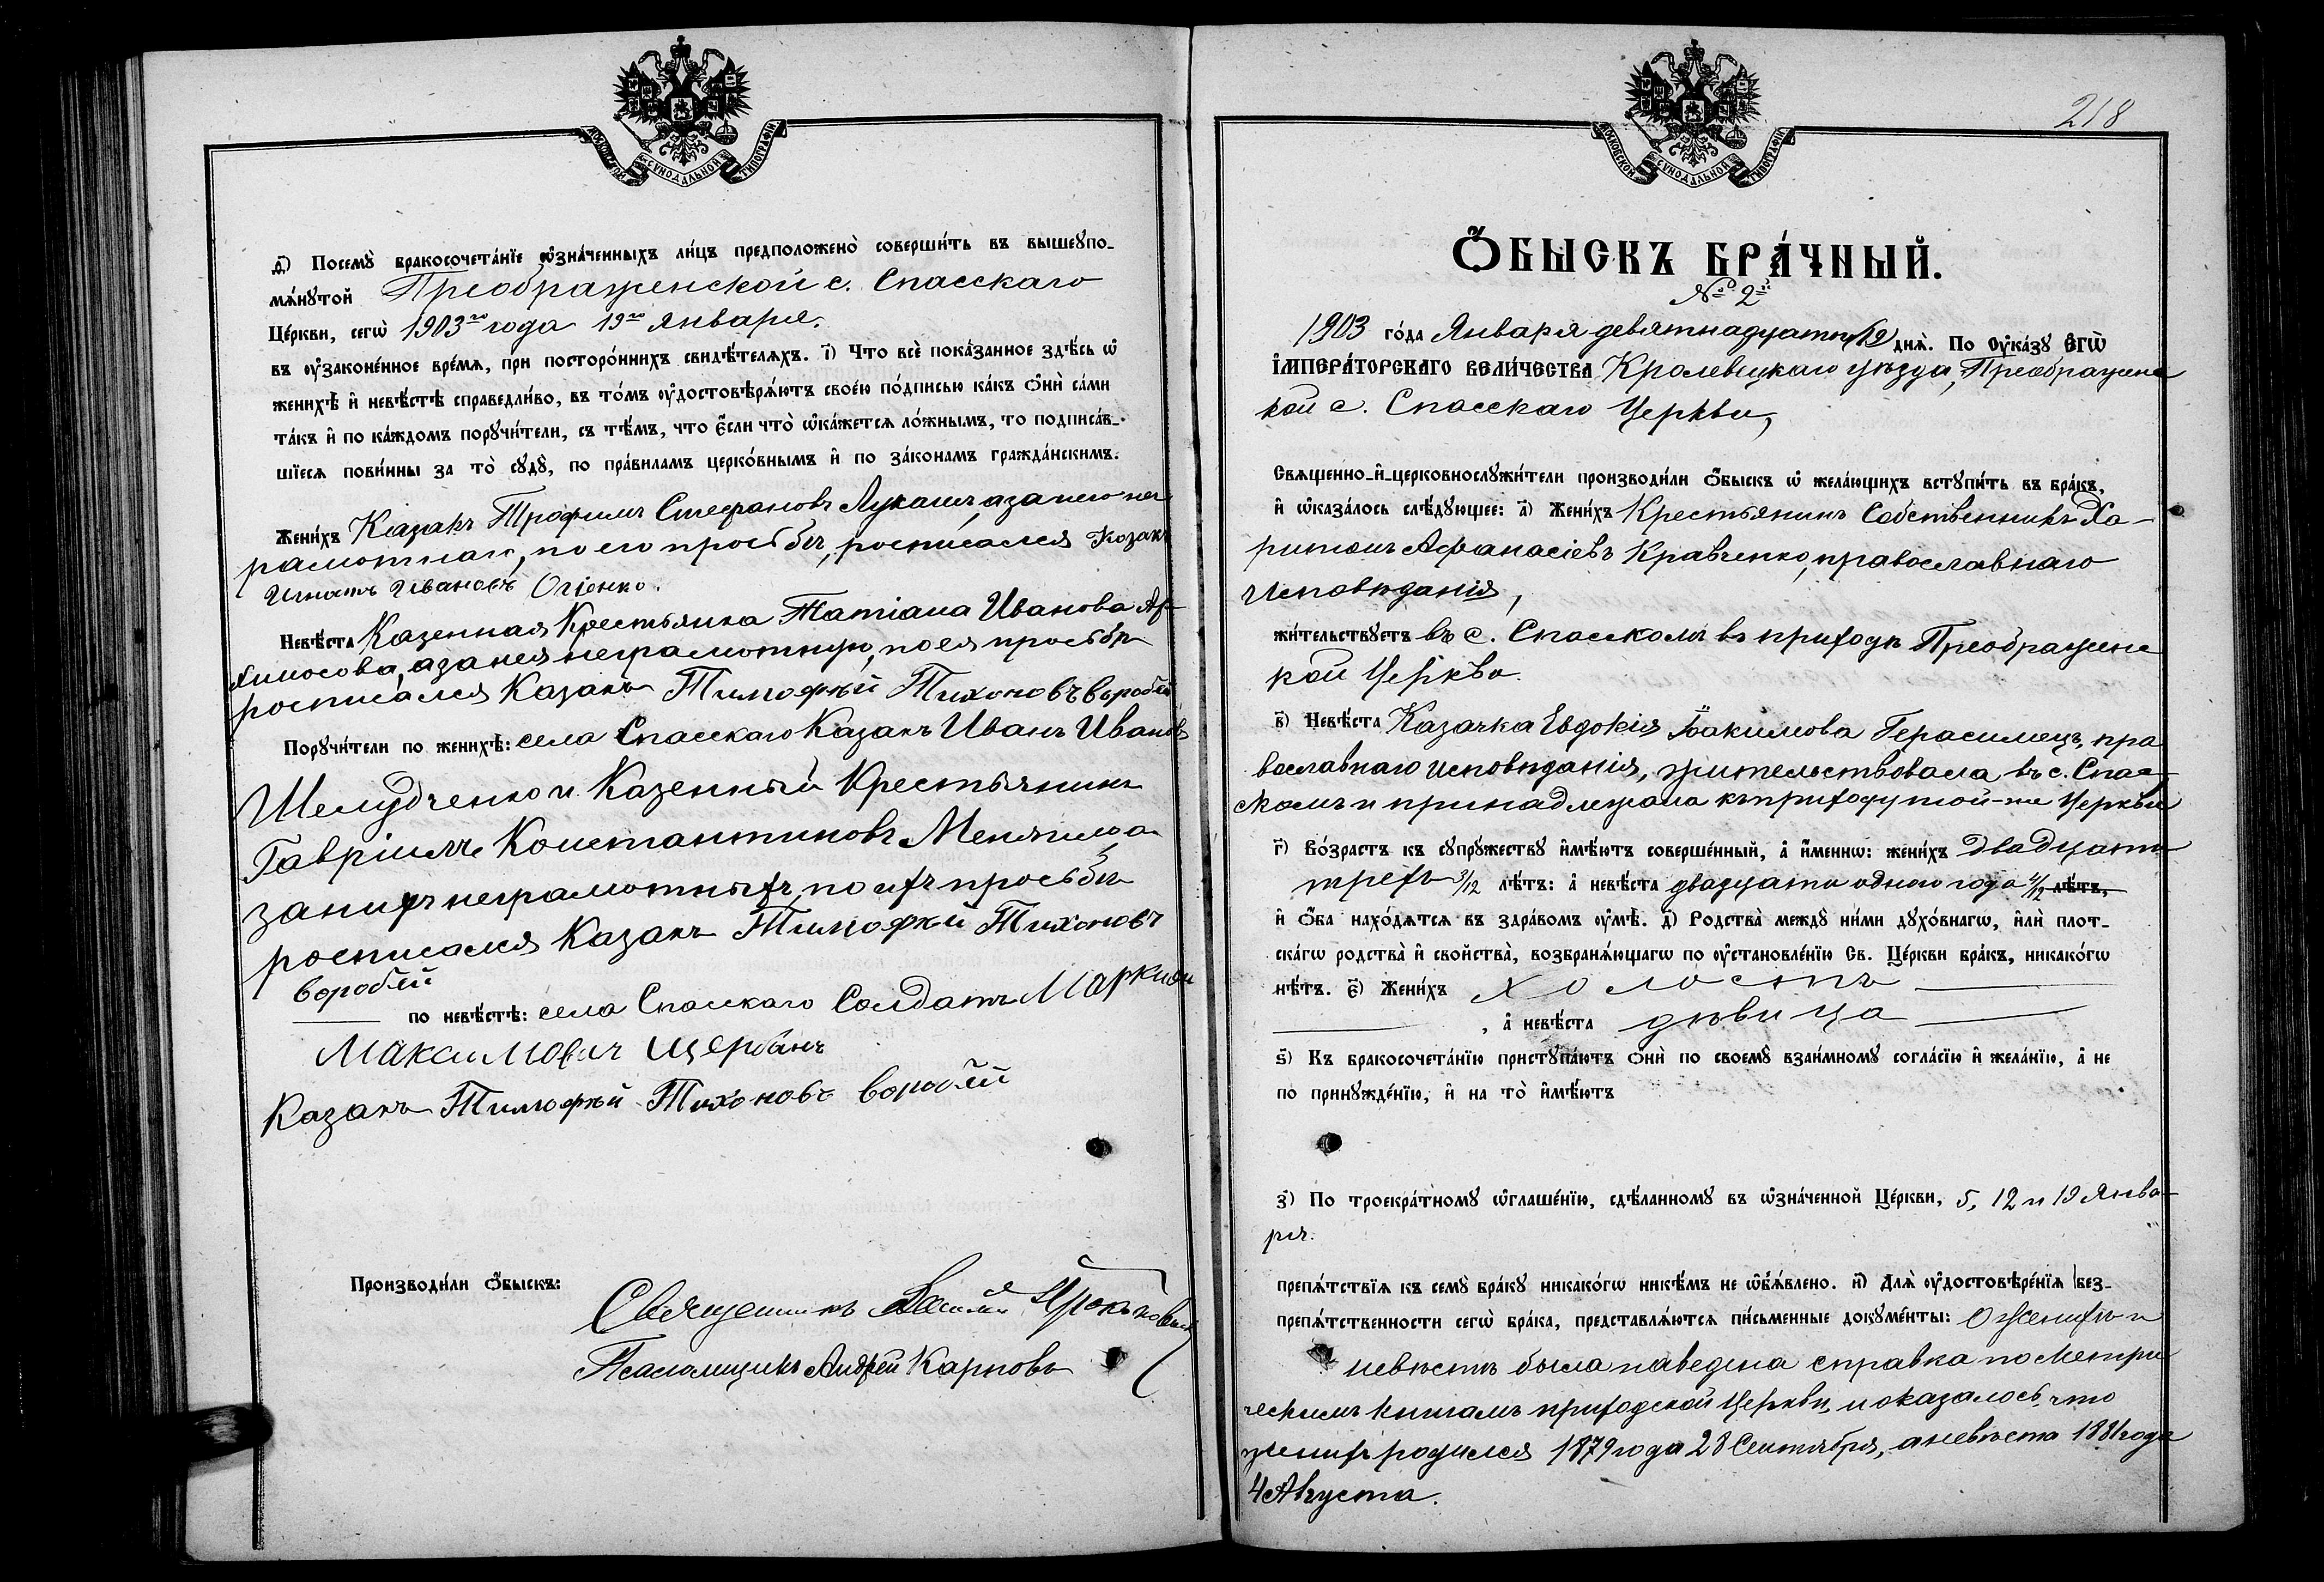 МОСКОВСКОЙ СѴНОДАЛЬНОЙ ТИПОГРАФІИ
ѳ҃) Посемꙋ̀ бракосочета́нїе ѡ҆зна́ченныхъ ли́цъ предположено̀ соверши́ть въ вышеꙋпо-
мѧ́нꙋтой Преображенской с. Спасскаго
Це́ркви, сегѡ̀ 1903го года 19го Января.
въ ᲂу҆законе́нное вре́мѧ, при посторо́ннихъ свидѣ́телѧхъ. і҃) Что всѐ пока́занное здѣ́сь ѡ҆
женихѣ̀ и҆ невѣ́стѣ справедли́во, въ то́мъ ᲂу҆достовѣрѧ́ютъ свое́ю по́дписью ка́къ ѻ҆нѝ са́ми
та́къ и҆ по ка́ждомъ порꙋчи́тели, съ тѣ́мъ, что є҆́сли что̀ ѡ҆ка́жетсѧ ло́жнымъ, то подписа́в-
шїесѧ пови́нны за то̀ сꙋдꙋ̀, по пра́виламъ церко́внымъ и҆ по зако́намъ гражда́нскимъ.
Жени́хъ Казакъ Трофимъ Стефановъ Лукашъ, а за него нег
рамотнаго, по его просьбѣ, росписался Козакъ
Игнатъ Ивановъ Огіенко.
Невѣ́ста Казенная Крестьянка Татіана Иванова
а за нея неграмотную, по ея просьбѣ
росписался Казакъ Тимофѣй Тихоновъ Воробей
Порꙋчи́тели по женихѣ̀: села Спасскаго Казакъ Иванъ Ивановъ
Шелудченко и Казенный Крестьянинъ
Гавріилъ Константиновъ а
за нихъ неграмотныхъ, по ихъ просьбѣ
росписался Казакъ Тимофѣй Тихоновъ
Воробей
по невѣ́стѣ: села Спасскаго Солдатъ Маркіан
Максимович Щербань
Казакъ Тимофѣй Тихоновъ Воробей
Производи́ли ѻ҆́быскъ:
Священникъ
Псаломщикъ Андрей Карповъ
218
МОСКОВСКОЙ СѴНОДАЛЬНОЙ ТИПОГРАФІИ
Ѻ҆́БЫСКЪ БРА́ЧНЫЙ.
№ 2й
1903 го́да Января девятнадцатаго (19) днѧ̀. По ᲂу҆ка́зꙋ Є҆ГѠ̀
І҆МПЕРА́ТОРСКАГО ВЕЛИ́ЧЕСТВА Кролевецкаго уѣзда, Преображенс
кой с. Спасскаго Церкви,
Свѧще́нно-и҆-церковнослꙋжи́тели производи́ли ѻ҆́быскъ ѡ҆ жела́ющихъ встꙋпи́ть въ бра́къ,
и҆ ѡ҆каза́лось слѣ́дꙋющее: а҃) Жени́хъ Крестьянинъ Собственникъ Ха-
ритонъ Афанасіевъ Кравченко, православнаго
Исповѣданія,
жи́тельствꙋетъ въ с. Спасскомъ въ приходѣ Преображенс
кой Церкви.
в҃) Невѣ́ста Казачка Евдокія Іоакимова Герасимецъ, пра
вославнаго исповѣданія, жительствовала въ с. Спасс
комъ и принадлежала къ приходу той-же Церкви
г҃) Во́зрастъ къ сꙋпрꙋ́жествꙋ и҆мѣ́ютъ соверше́нный, а҆ и҆́меннѡ: жени́хъ двадцати
трехъ 3/12 лѣ́тъ: а҆ невѣ́ста двадцати одного года 4/12 лѣ́тъ,
и҆ ѻ҆́ба нахо́дѧтсѧ въ здра́вомъ ᲂу҆мѣ̀. д҃) Родства̀ междꙋ̀ ни́ми дꙋхо́внагѡ, и҆лѝ плот-
ска́гѡ родства̀ и҆ свойства̀, возбранѧ́ющагѡ по ᲂу҆становле́нїю Св. Це́ркви бра́къ, никако́гѡ
нѣ́тъ. є҃) Жени́хъ холостъ
, а҆ невѣ́ста дѣвица
ѕ҃) Къ бракосочета́нїю пристꙋпа́ютъ ѻ҆нѝ по своемꙋ̀ взаи́мномꙋ согла́сїю и҆ жела́нїю, а҆ не
по принꙋжде́нїю, и҆ на то̀ и҆мѣ́ютъ
з҃) По троекра́тномꙋ ѡ҆глаше́нїю, сдѣ́ланномꙋ въ ѡ҆зна́ченной Це́ркви, 5, 12 и 19 Янва-
ря.
препѧ́тствїѧ къ семꙋ̀ бра́кꙋ никако́гѡ никѣ́мъ не ѡ҆бъѧ́влено. и҃) Длѧ̀ ᲂу҆достовѣре́нїѧ без-
препѧ́тственности сегѡ̀ бра́ка, представлѧ́ютсѧ пи́сьменные докꙋме́нты: О женихѣ и
невѣстѣ была наведена справка по Метри
ческимъ книгамъ приходской Церкви, и оказалось, что
женихъ родился 1879 года 28 Сентября, а невѣста 1881 года
4 Августа.